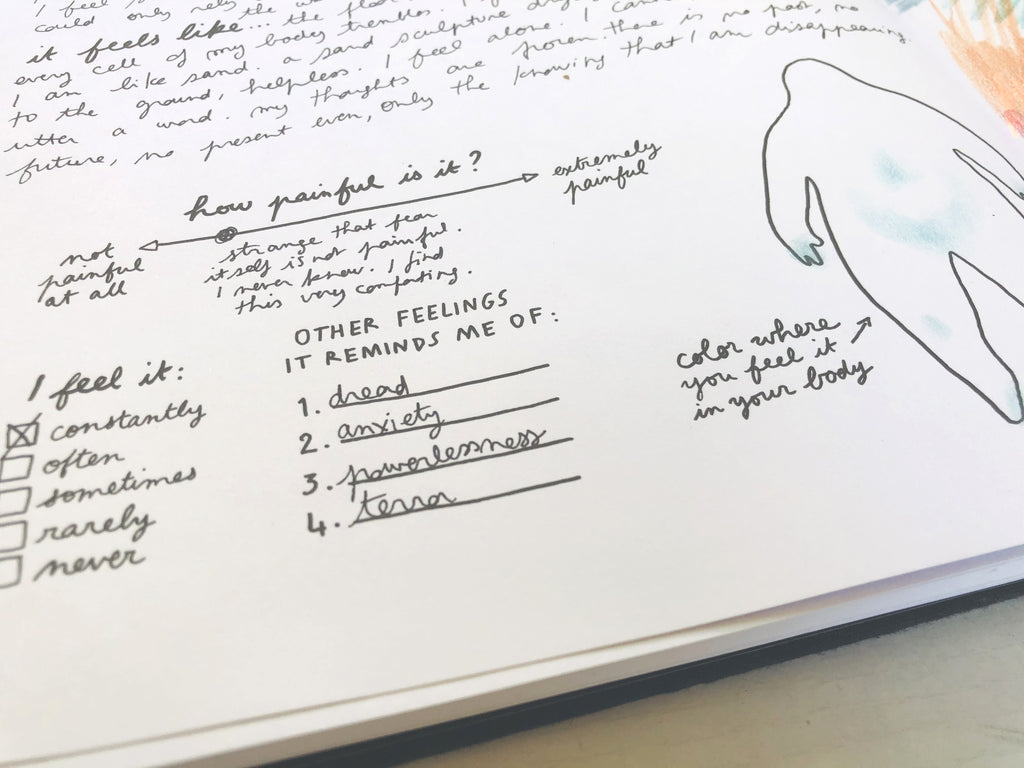 I feel
could only rely the
it feels like... the floor
every cell of my body trembles. I
I am like sand. a sand sculpture
to the ground, helpless. I feel alone. I
utter a word. my thoughts are frozen. there is no past, no
future, no present even, only the knowing that I am disappearing.
how painful is it?
not
painful
at all
extremely
painful
strange that fear
itself is not painful.
I never knew. I find
this very comforting.
I feel it:
constantly
often
sometimes
rarely
never
OTHER FEELINGS
IT REMINDS ME OF:
1. dread
2. anxiety
3. powerlessness
4. terror
color where
you feel it
in your body